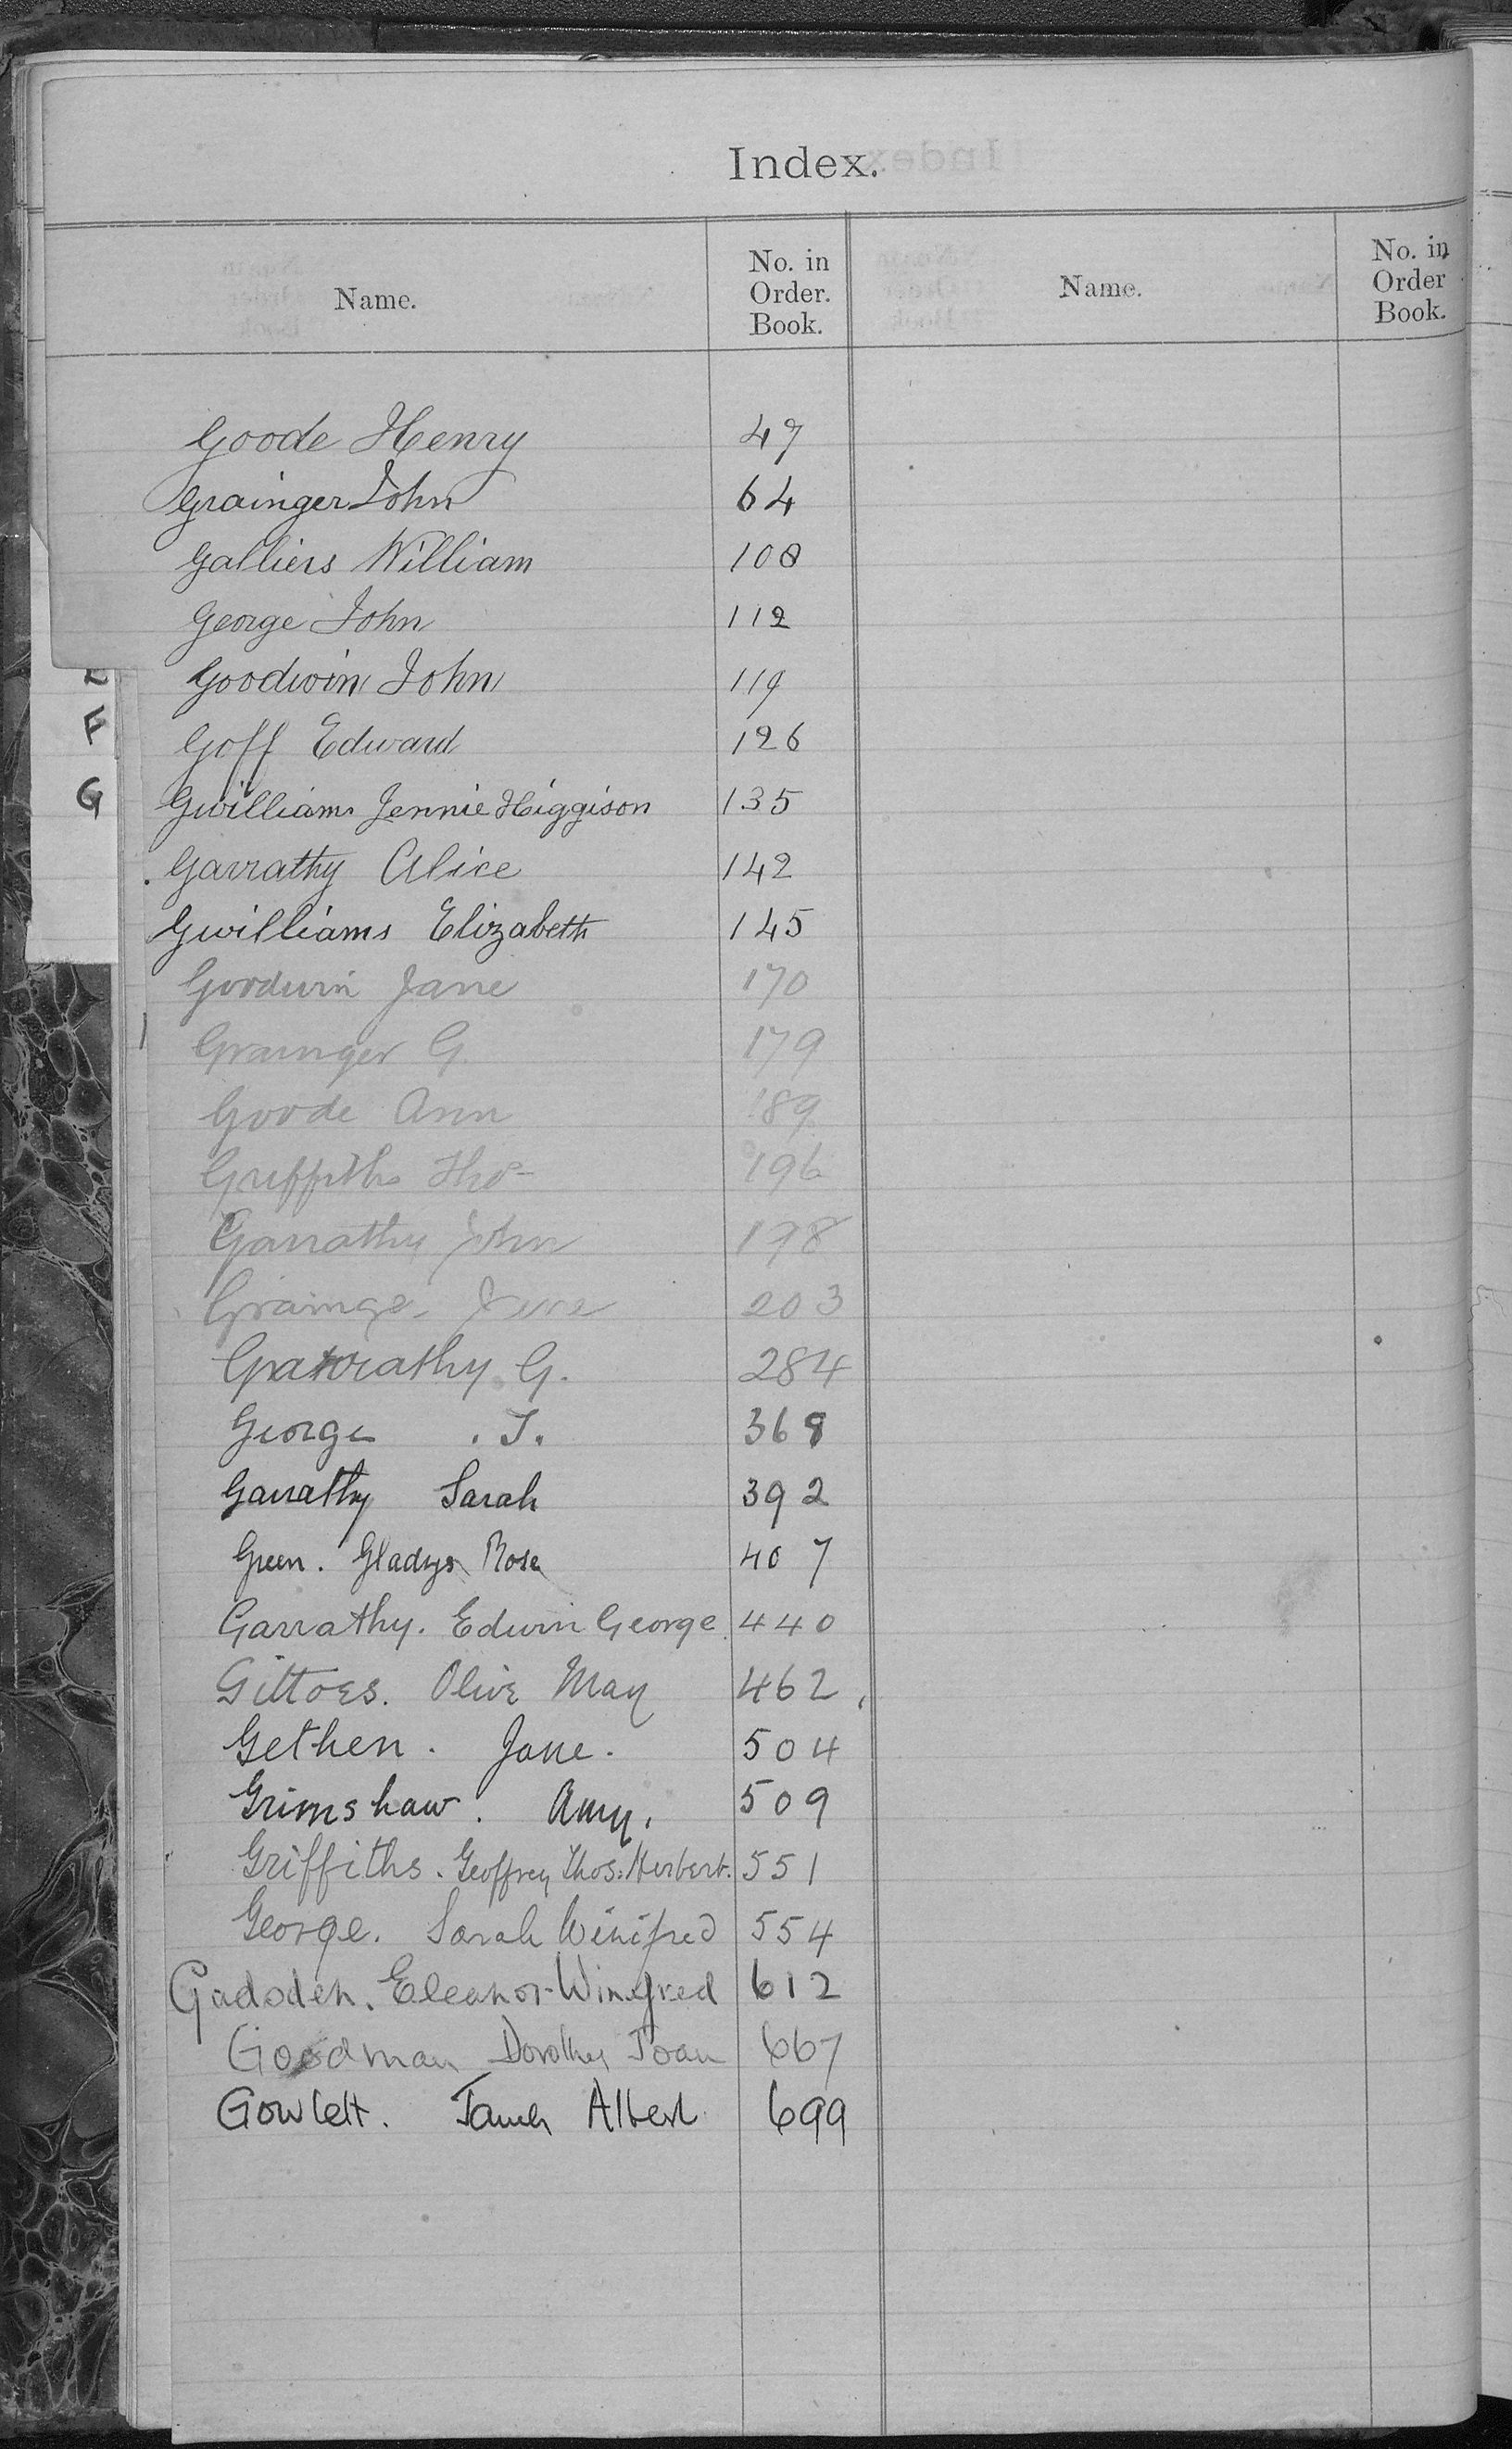 Index.
Name.
No. in
Order.
Book.
Name.
No. in
Order
Book.
Goode Henry 47
Grainger John 64
Galliers William 108
George John 112
Goodwin John 119
Goff Edward 126
Gwilliams Jennie Higgison 135
Garrathy Alice 142
Gwilliams Elizabeth 145
Goodwin Jane 170
Grainger G. 179
Goode Ann 189
Griffiths Thos 196
Garrathy John 198
Grainger 203
Garrathy G. 284
George . J. 368
Garrathy Sarah 392
Green. Gladys Rose 407
Garrathy. Edwin George 440
Gittoes. Olive May 462
Gethen. Jane. 504
Grimshaw. Amy. 509
Griffiths. Geoffrey Thos: Herbert. 551
George. Sarah Winifred 554
Gadsden. Eleanor Winifred 612
Goodman Dorothy Joan 667
Gowlett. James Albert 699
F
G